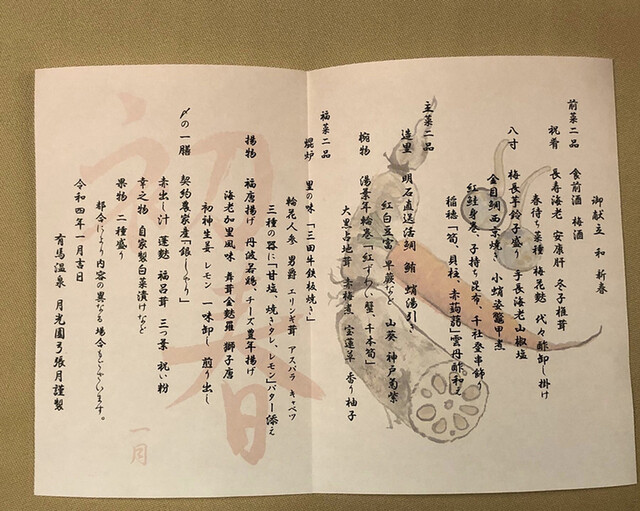 御献立 和 新春
前菜二品 食前酒 梅酒
祝肴 長寿海老 安康肝 冬子椎茸
春待ち菜種 梅花麩 代々酢卸し掛け
八寸 梅長芋鈴子盛り 手長海老山椒塩
金目鯛西京焼き 小蛸姿鼈甲煮
紅鮭身巻 子持ち昆布 千社登串飾り
稲穂「筍、貝柱、赤蒟蒻」雲丹酢和え
主菜二品
造里 明石直送活鯛 鮪 蛸湯引き
紅白豆富 早蕨など 山葵 神戸菊紫
椀物 湯葉年輪巻「紅ずわい蟹、千木筍」
大黒占地茸 赤梅煮 宝蓮草 香り柚子
福菜二品
焜炉 里の味「三田牛鉄板焼き」
輪花人参 男爵 エリンギ茸 アスパラ キャベツ
三種の器に「甘塩、焼きタレ、レモン」バター添え
揚物 福唐揚げ 丹波若鶏、チーズ豊年揚げ
海老加里風味 舞茸金麩羅 獅子唐
初神生姜 レモン 一味卸し 煎り出し
〆の一膳 契約農家産「銀しゃり」
赤出し汁 蓮麩 福呂茸 三つ葉 祝い粉
幸之物 自家製白菜漬けなど
果物 二種盛り
都合により内容の異なる場合もございます。
令和四年一月吉日
有馬温泉 月光園弓張月謹製
初春
一月